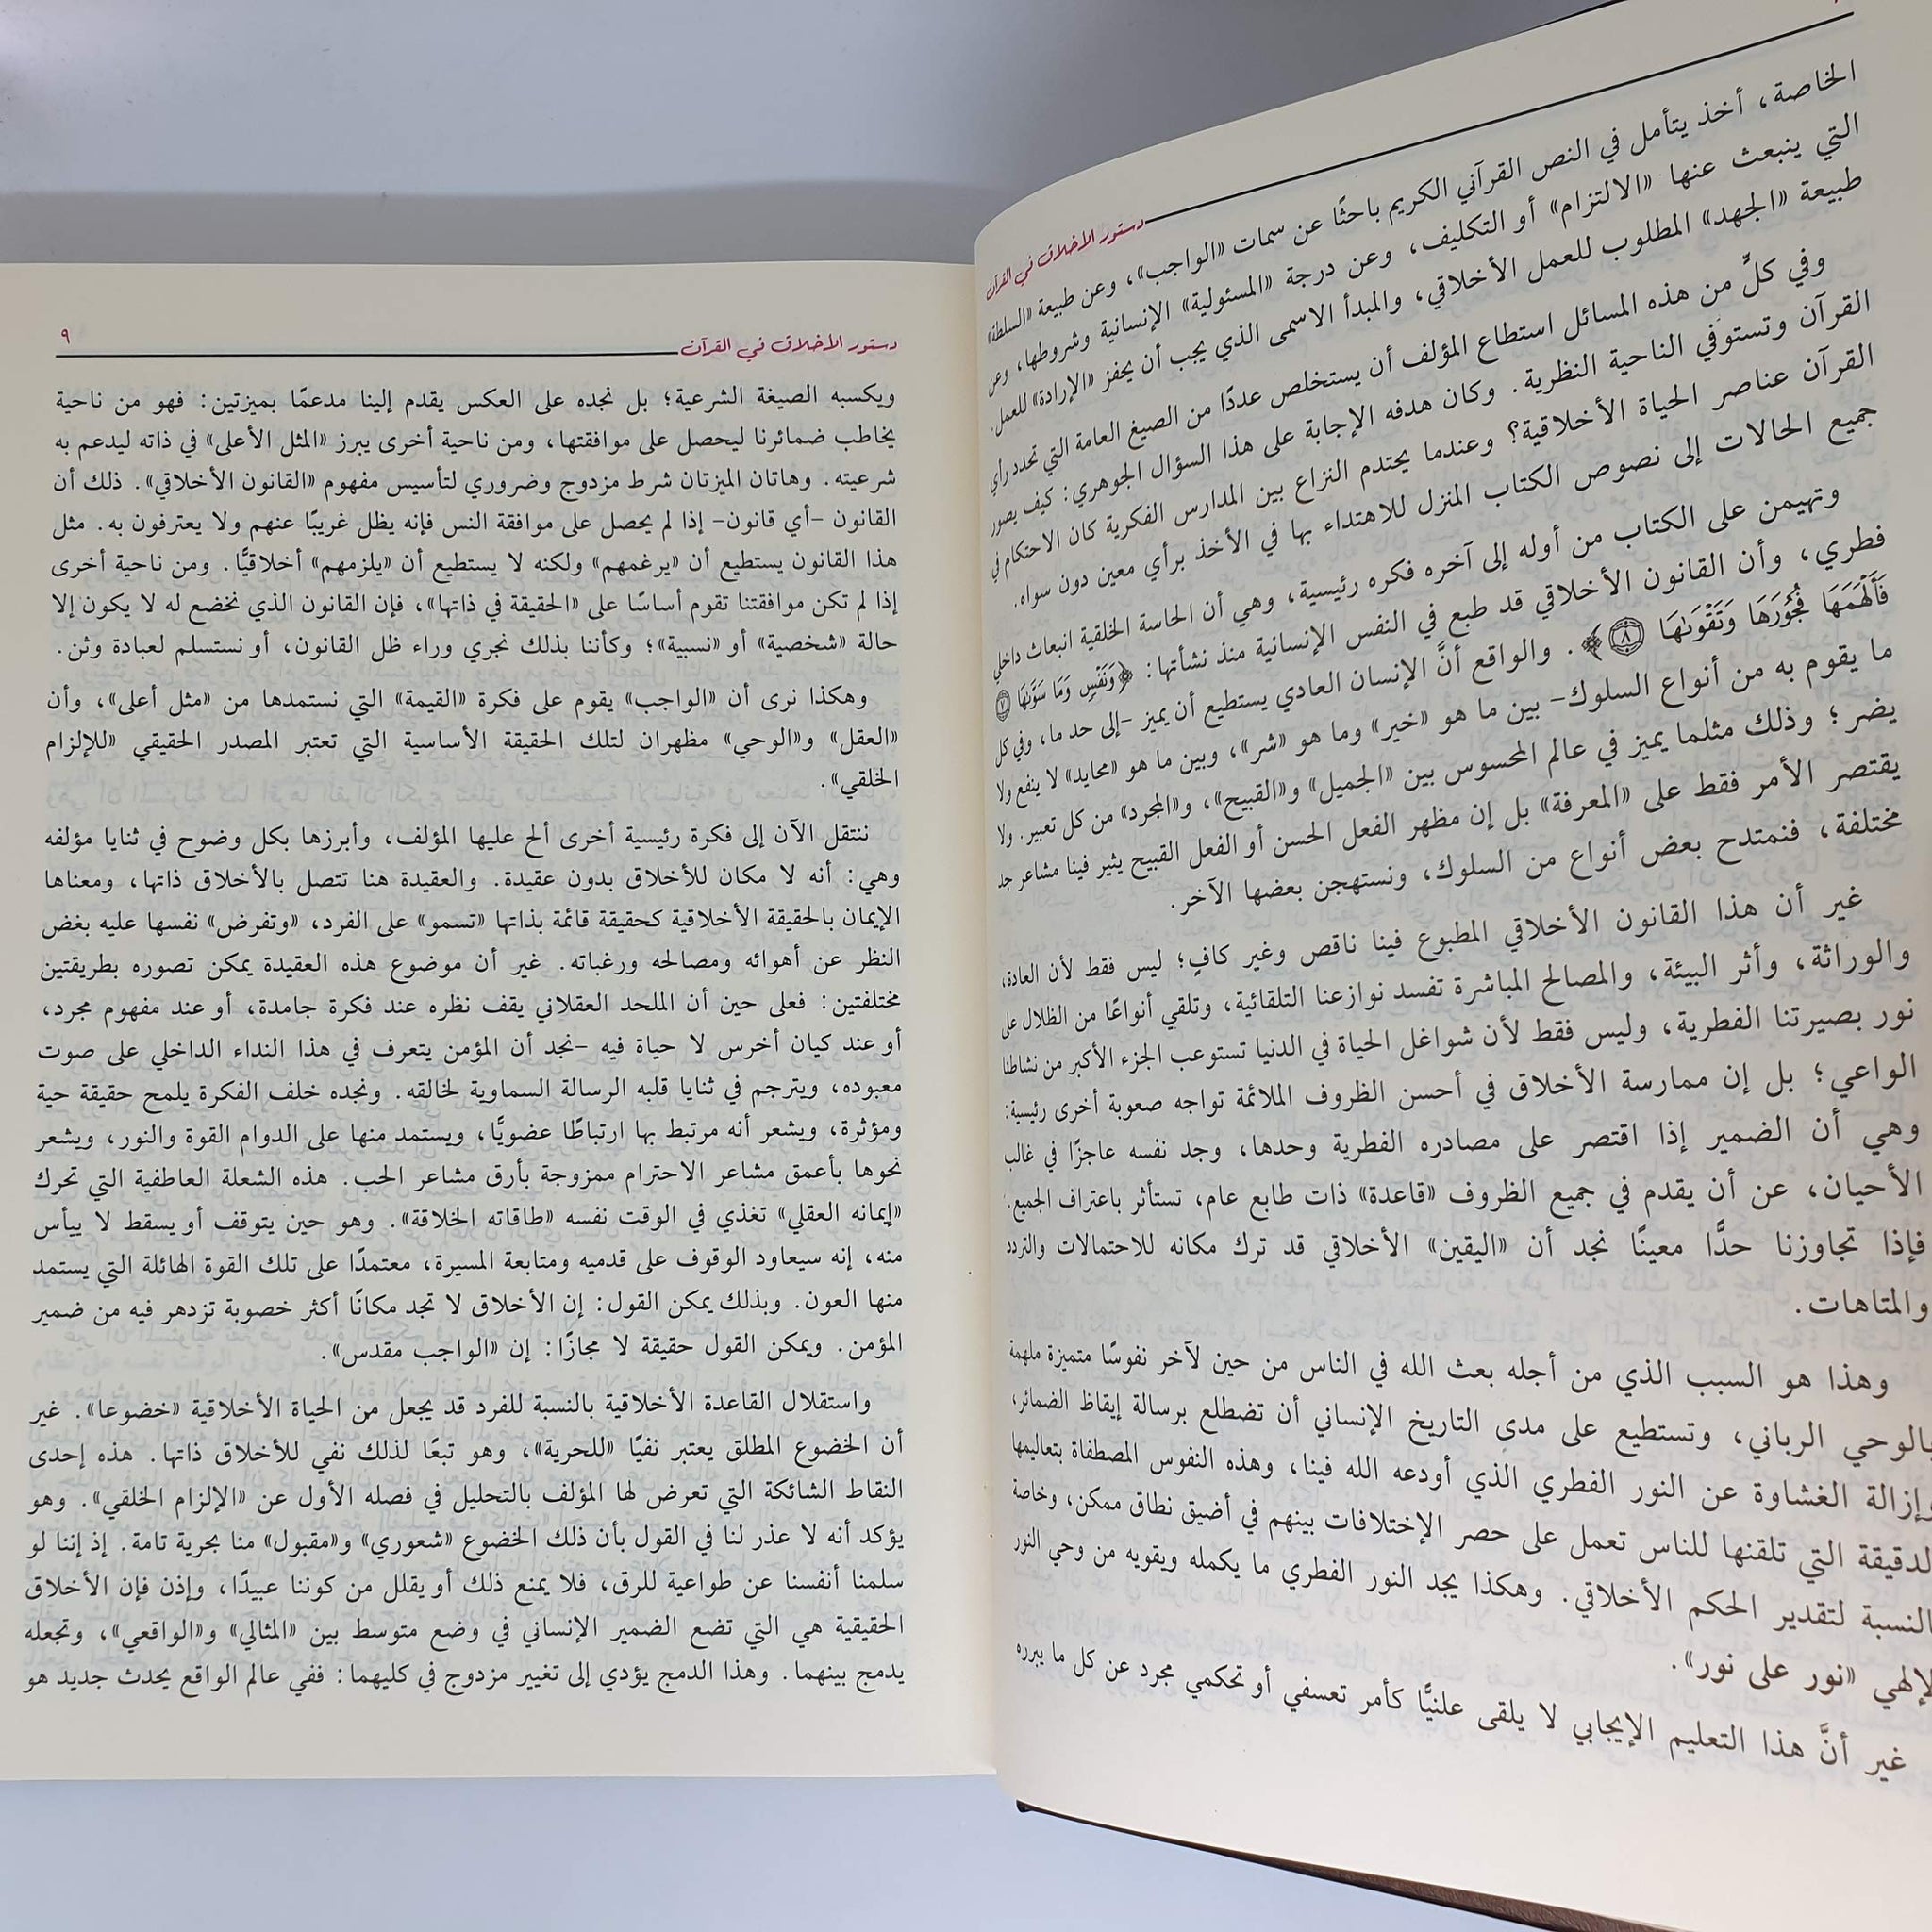 دستور الأخلاق في القرآن
الخاصة، أخذ يتأمل في النص القرآني الكريم باحثًا عن سمات «الواجب»، وعن طبيعة «السلطة»
التي ينبعث عنها «الالتزام» أو التكليف، وعن درجة «المسئولية» الإنسانية وشروطها، وعن
طبيعة «الجهد» المطلوب للعمل الأخلاقي، والمبدأ الاسمى الذي يجب أن يحفز «الإرادة» للعمل.
وفي كلٍّ من هذه المسائل استطاع المؤلف أن يستخلص عددًا من الصيغ العامة التي تحدد رأي
القرآن وتستوفي الناحية النظرية. وكان هدفه الإجابة على هذا السؤال الجوهري: كيف يصور
القرآن عناصر الحياة الأخلاقية؟ وعندما يحتدم النزاع بين المدارس الفكرية كان الاحتكام في
جميع الحالات إلى نصوص الكتاب المنزل للاهتداء بها في الأخذ برأي معين دون سواه.
وتهيمن على الكتاب من أوله إلى آخره فكره رئيسية، وهي أن الحاسة الخلقية انبعاث داخلي
فطري، وأن القانون الأخلاقي قد طبع في النفس الإنسانية منذ نشأتها: ﴿وَنَفْسٍ وَمَا سَوَّىٰهَا ٧
فَأَلْهَمَهَا فُجُورَهَا وَتَقْوَىٰهَا ٨﴾. والواقع أنَّ الإنسان العادي يستطيع أن يميز -إلى حد ما، وفي كل
ما يقوم به من أنواع السلوك- بين ما هو «خير» وما هو «شر»، وبين ما هو «محايد» لا ينفع ولا
يضر؛ وذلك مثلما يميز في عالم المحسوس بين «الجميل» و«القبيح»، و«المجرد» من كل تعبير. ولا
يقتصر الأمر فقط على «المعرفة» بل إن مظهر الفعل الحسن أو الفعل القبيح يثير فينا مشاعر جد
مختلفة، فنمتدح بعض أنواع من السلوك، ونستهجن بعضها الآخر.
غير أن هذا القانون الأخلاقي المطبوع فينا ناقص وغير كافٍ؛ ليس فقط لأن العادة،
والوراثة، وأثر البيئة، والمصالح المباشرة تفسد نوازعنا التلقائية، وتلقي أنواعًا من الظلال على
نور بصيرتنا الفطرية، وليس فقط لأن شواغل الحياة في الدنيا تستوعب الجزء الأكبر من نشاطنا
الواعي؛ بل إن ممارسة الأخلاق في أحسن الظروف الملائمة تواجه صعوبة أخرى رئيسية:
وهي أن الضمير إذا اقتصر على مصادره الفطرية وحدها، وجد نفسه عاجزًا في غالب
الأحيان، عن أن يقدم في جميع الظروف «قاعدة» ذات طابع عام، تستأثر باعتراف الجميع.
فإذا تجاوزنا حدًّا معينًا نجد أن «اليقين» الأخلاقي قد ترك مكانه للاحتمالات والتردد
والمتاهات.
وهذا هو السبب الذي من أجله بعث الله في الناس من حين لآخر نفوسًا متميزة ملهمة
بالوحي الرباني، وتستطيع على مدى التاريخ الإنساني أن تضطلع برسالة إيقاظ الضمائر،
وإزالة الغشاوة عن النور الفطري الذي أودعه الله فينا، وهذه النفوس المصطفاة بتعاليمها
الدقيقة التي تلقنها للناس تعمل على حصر الإختلافات بينهم في أضيق نطاق ممكن، وخاصة
بالنسبة لتقدير الحكم الأخلاقي. وهكذا يجد النور الفطري ما يكمله ويقويه من وحي النور
الإلهي «نور على نور».
غير أنَّ هذا التعليم الإيجابي لا يلقى علنيًّا كأمر تعسفي أو تحكمي مجرد عن كل ما يبرره
دستور الأخلاق في القرآن ٩
ويكسبه الصيغة الشرعية؛ بل نجده على العكس يقدم إلينا مدعمًا بميزتين: فهو من ناحية
يخاطب ضمائرنا ليحصل على موافقتها، ومن ناحية أخرى يبرز «المثل الأعلى» في ذاته ليدعم به
شرعيته. وهاتان الميزتان شرط مزدوج وضروري لتأسيس مفهوم «القانون الأخلاقي». ذلك أن
القانون -أي قانون- إذا لم يحصل على موافقة النس فإنه يظل غريبًا عنهم ولا يعترفون به. مثل
هذا القانون يستطيع أن «يرغمهم» ولكنه لا يستطيع أن «يلزمهم» أخلاقيًّا. ومن ناحية أخرى
إذا لم تكن موافقتنا تقوم أساسًا على «الحقيقة في ذاتها»، فإن القانون الذي نخضع له لا يكون إلا
حالة «شخصية» أو «نسبية»؛ وكأننا بذلك نجري وراء ظل القانون، أو نستسلم لعبادة وثن.
وهكذا نرى أن «الواجب» يقوم على فكرة «القيمة» التي نستمدها من «مثل أعلى»، وأن
«العقل» و«الوحي» مظهران لتلك الحقيقة الأساسية التي تعتبر المصدر الحقيقي «للإلزام
الخلقي».
ننتقل الآن إلى فكرة رئيسية أخرى ألح عليها المؤلف، وأبرزها بكل وضوح في ثنايا مؤلفه
وهي: أنه لا مكان للأخلاق بدون عقيدة. والعقيدة هنا تتصل بالأخلاق ذاتها، ومعناها
الإيمان بالحقيقة الأخلاقية كحقيقة قائمة بذاتها «تسمو» على الفرد، «وتفرض» نفسها عليه بغض
النظر عن أهوائه ومصالحه ورغباته. غير أن موضوع هذه العقيدة يمكن تصوره بطريقتين
مختلفتين: فعلى حين أن الملحد العقلاني يقف نظره عند فكرة جامدة، أو عند مفهوم مجرد،
أو عند كيان أخرس لا حياة فيه -نجد أن المؤمن يتعرف في هذا النداء الداخلي على صوت
معبوده، ويترجم في ثنايا قلبه الرسالة السماوية لخالقه. ونجده خلف الفكرة يلمح حقيقة حية
ومؤثرة، ويشعر أنه مرتبط بها ارتباطًا عضويًّا، ويستمد منها على الدوام القوة والنور، ويشعر
نحوها بأعمق مشاعر الاحترام ممزوجة بأرق مشاعر الحب. هذه الشعلة العاطفية التي تحرك
«إيمانه العقلي» تغذي في الوقت نفسه «طاقاته الخلاقة». وهو حين يتوقف أو يسقط لا ييأس
منه، إنه سيعاود الوقوف على قدميه ومتابعة المسيرة، معتمدًا على تلك القوة الهائلة التي يستمد
منها العون. وبذلك يمكن القول: إن الأخلاق لا تجد مكانًا أكثر خصوبة تزدهر فيه من ضمير
المؤمن. ويمكن القول حقيقة لا مجازًا: إن «الواجب مقدس».
واستقلال القاعدة الأخلاقية بالنسبة للفرد قد يجعل من الحياة الأخلاقية «خضوعا». غير
أن الخضوع المطلق يعتبر نفيًا «للحرية»، وهو تبعًا لذلك نفي للأخلاق ذاتها. هذه إحدى
النقاط الشائكة التي تعرض لها المؤلف بالتحليل في فصله الأول عن «الإلزام الخلقي». وهو
يؤكد أنه لا عذر لنا في القول بأن ذلك الخضوع «شعوري» و«مقبول» منا بحرية تامة. إذ إننا لو
سلمنا أنفسنا عن طواعية للرق، فلا يمنع ذلك أو يقلل من كوننا عبيدًا، وإذن فإن الأخلاق
الحقيقية هي التي تضع الضمير الإنساني في وضع متوسط بين «المثالي» و«الواقعي»، وتجعله
يدمج بينهما. وهذا الدمج يؤدي إلى تغيير مزدوج في كليهما: ففي عالم الواقع يحدث جديد هو